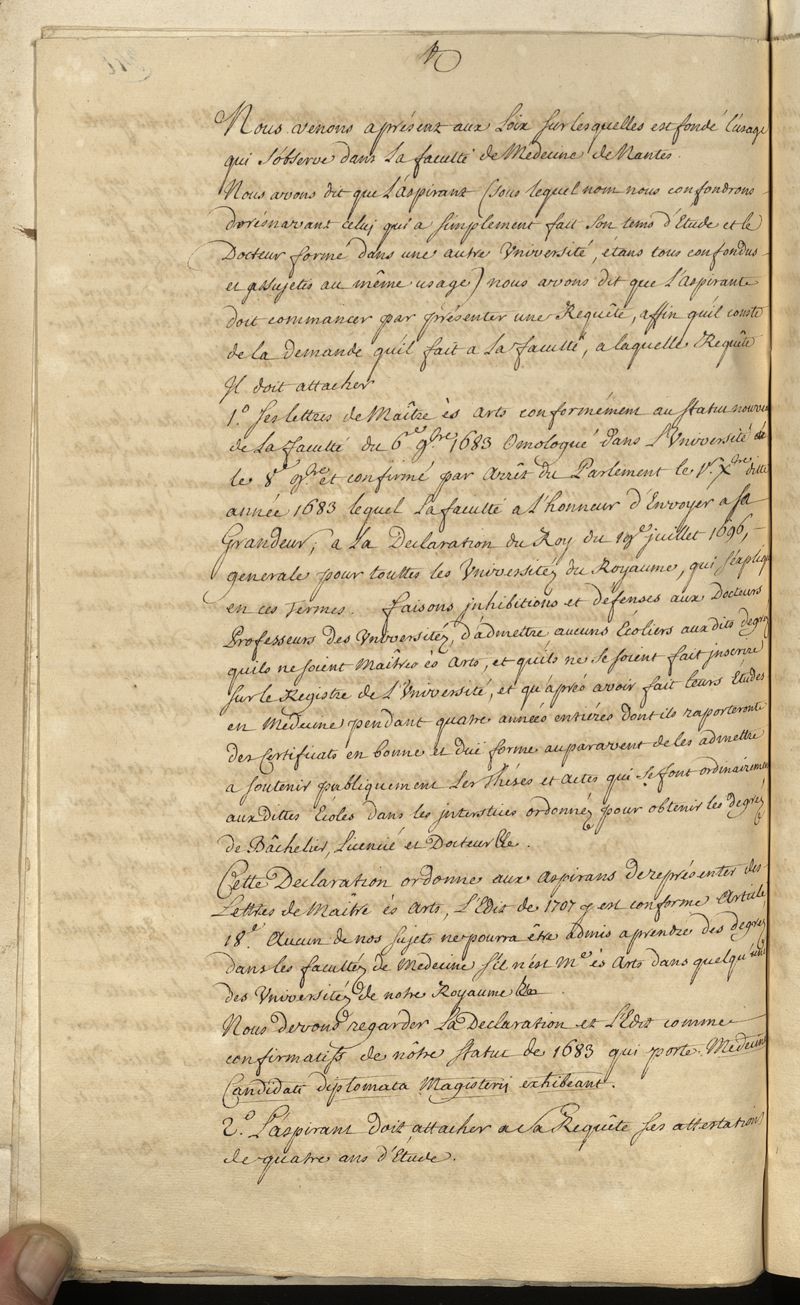 Nous venons aprésent aux Loix sur lesquelles est fondé l'usage
qui s'observe dans La faculté de Medecine de Nantes.
Nous avons dit que L'aspirant (sous lequel nom nous confondrons
dorénavant celuj qui a simplement fait son tems d'Etude et le
Docteur formé dans une autre Vniversité, etans tous confondus
et assujetis au même usage) nous avons dit que L'aspirant
doit commancer par présenter une Requête, affin qu'il conste
de la demande qu'il fait a La faculté, a laquelle Requête
Jl doit attacher
1.° ses lettres de Maître ès Arts conformément au statut nouveau
de La faculté du 6.e 9.bre 1683 Omologué dans L'Vniversité
le 8.e 9.bre et confirmé par Arrêt du Parlement le 1.er X.bre ditte
année 1683 lequel La faculté a L'honneur d'Envoyer a sa
Grandeur, a La Declaration du Roy du 19.e juillet 1696,
generale pour touttes les Vniversitéz du Royaume, qui s'éxplique
en ces Termes. faisons jnhibitions et défenses aux Docteurs
Professeurs des Vniversitéz, d'admettre aucuns Ecoliers auxdits degréz
qu'ils ne soient Maîtres ès Arts, et qu'ils ne se soient fait jnscrire
sur le Registre de L'Vniversité, et qu'aprés avoir fait leurs Etudes
en Medecine pendant quatre années entiéres dont ils raporteront
des Certificats en bonne et duë forme auparavent de les admettre
a soutenir publiquement Les Théses et Actes qui se font ordinairement
auxdittes Ecoles dans les jnterstices ordonnéz pour obtenir les degréz
de Bâchelier, Licencié et Docteur &c.
Cette Declaration ordonne aux aspirans de représenter des
Lettres de Maître ès Arts, L'Edit de 1707 y est conforme Article
18.e Aucun de nos sujets ne pourra être admis aprendre des degréz
dans les facultéz de Medecine s'il n'est M.e ès Arts dans quelqu'une
des Vniversitéz de notre Royaume &c.
Nous devons regarder La Declaration et L'Edit comme
confirmatifs de nôtre statut de 1683 qui porte Medecinæ
Candidati diplomata Magisterij exhibeant.
2.° L'aspirant doit attacher a sa Requête ses attestations
de quatre ans d'Etude.